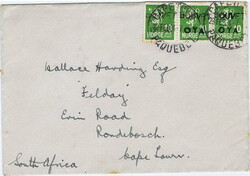 NORGE
NORGE
NORGE
Wallace Harding Esq
"Felday"
Erin Road
Rondebosch
Cape Town.
South Africa